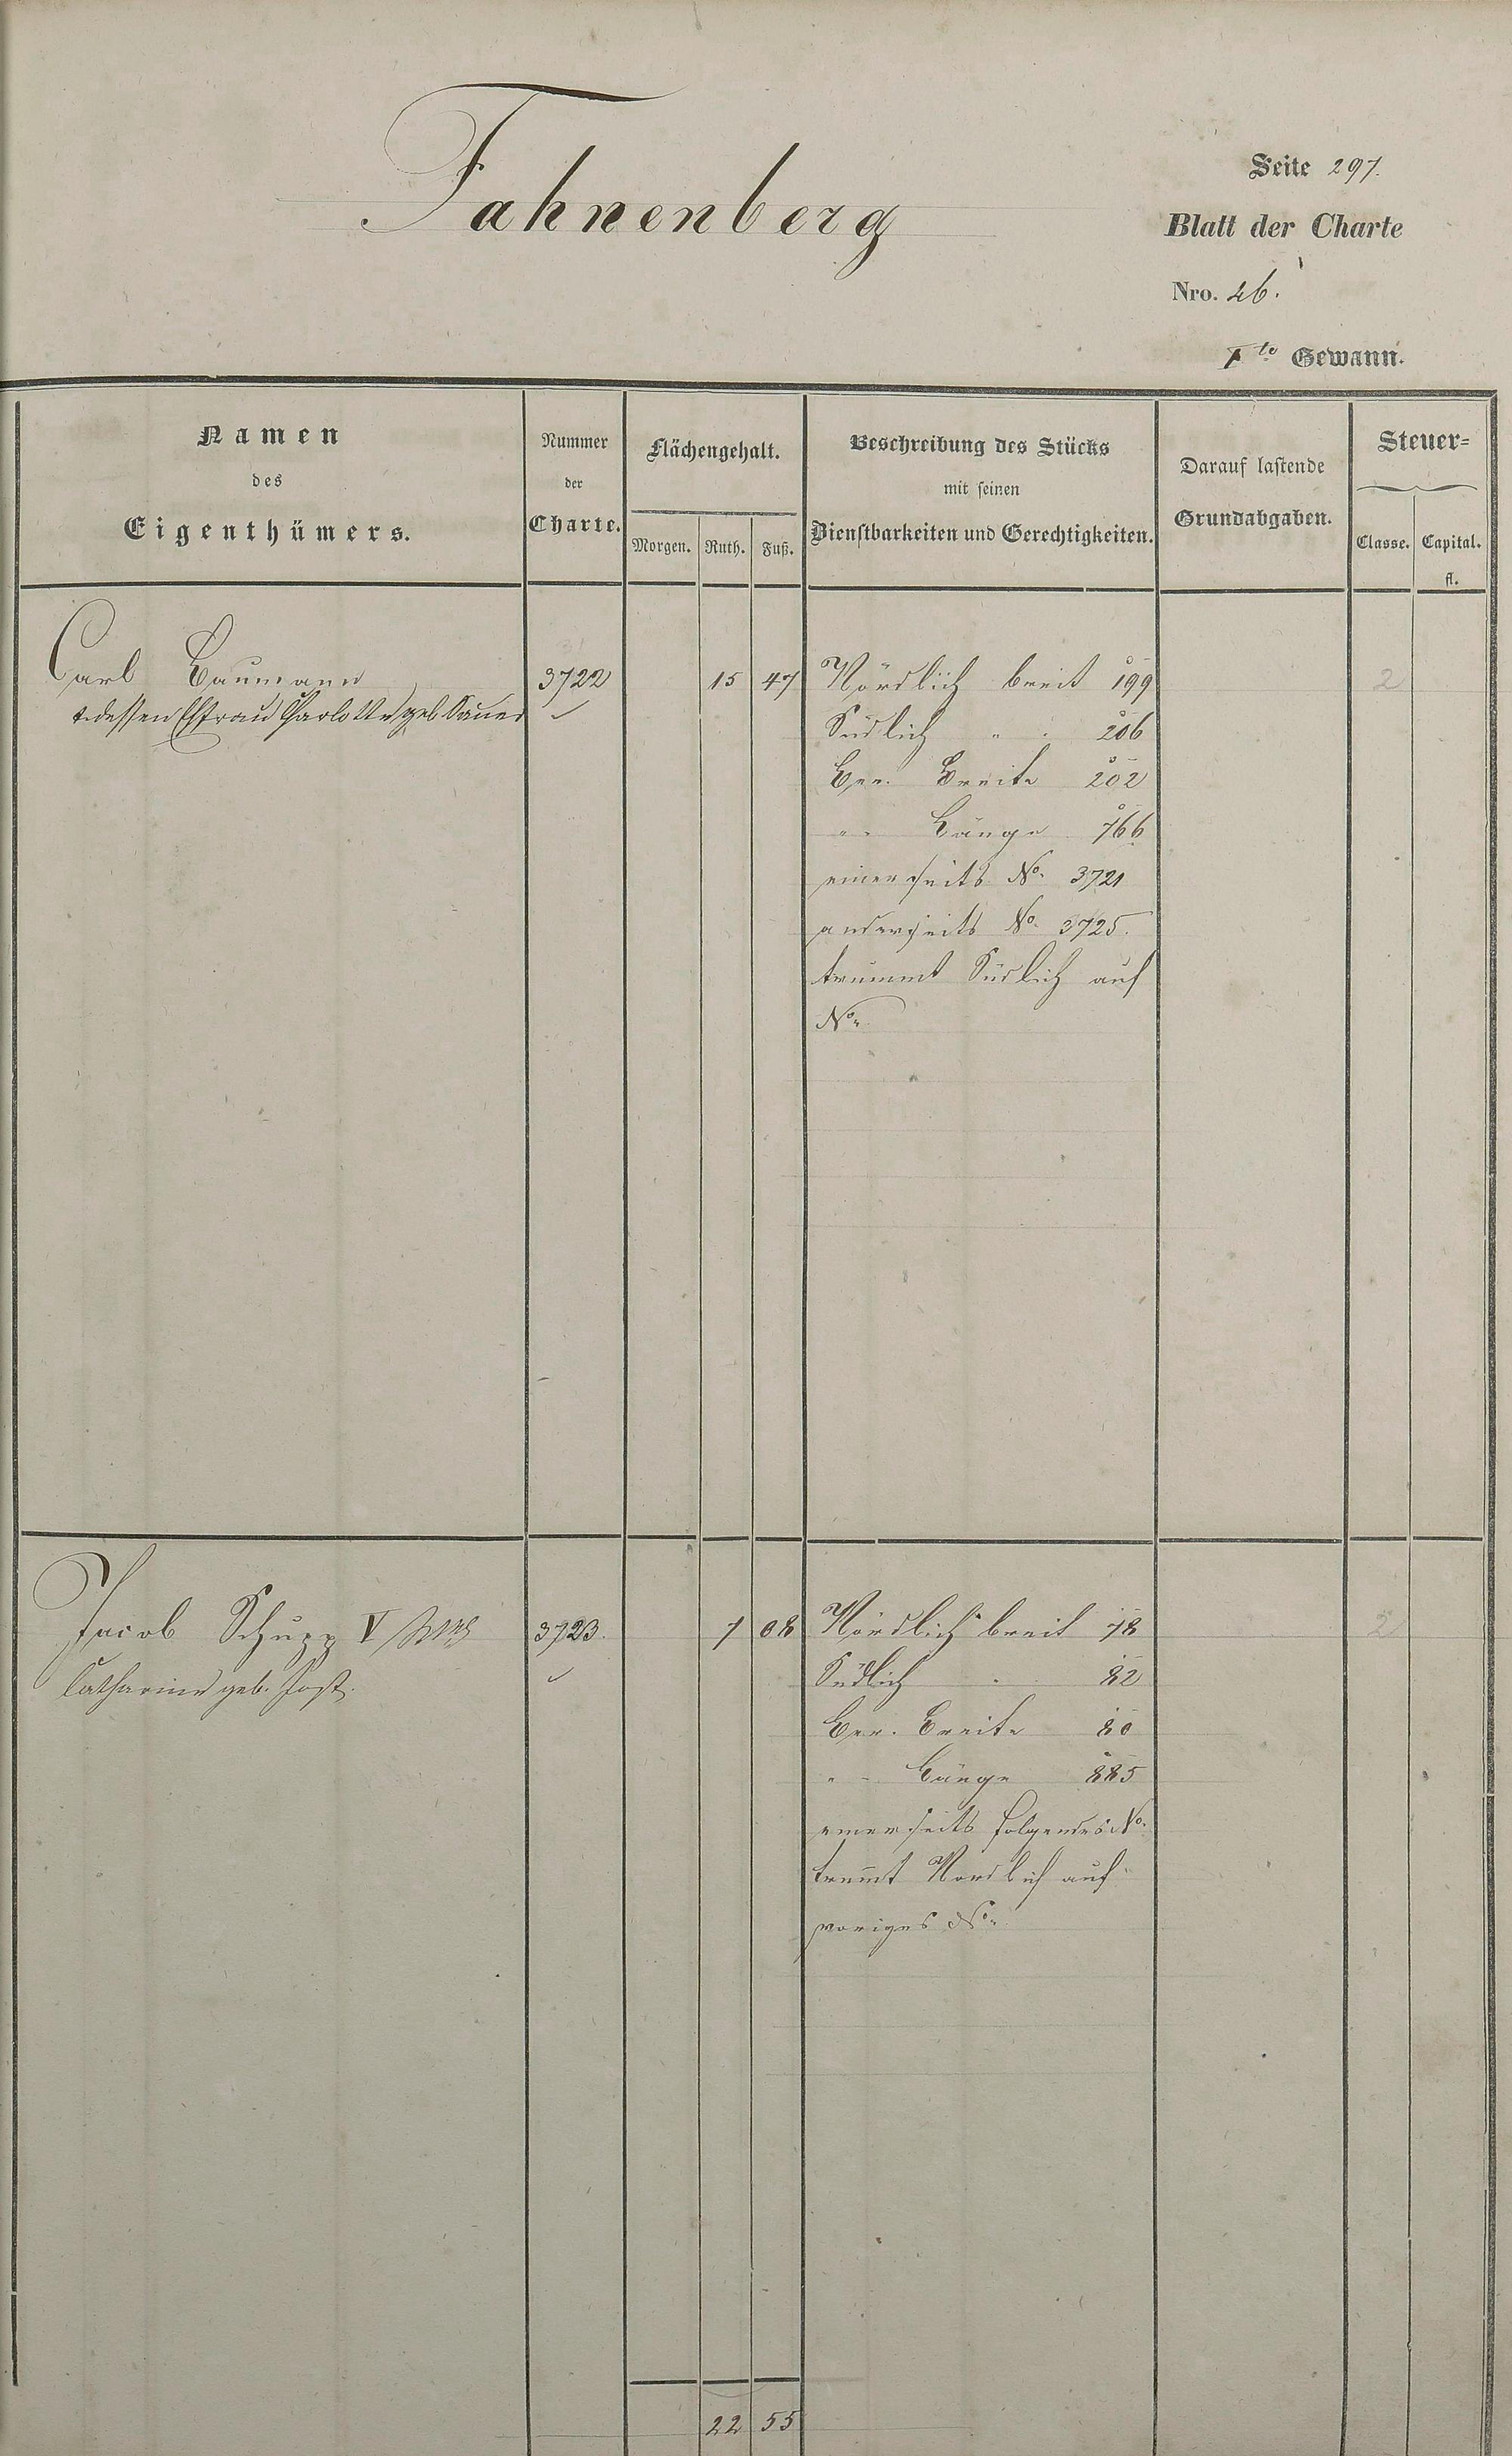 Fahnenberg
Seite 297.
Blatt der Charte
Nro. 26.
1te Gewann.
Namen
des
Eigenthümers.
Nummer
der
Charte.
Flächengehalt.
Morgen. Ruth. Fuß.
Beschreibung des Stücks
mit seinen
Dienstbarkeiten und Gerechtigkeiten.
Darauf lastende
Grundabgaben.
Steuer-
Classe. Capital.
fl.
Carl Baumann 3722 15 47 Nördlich breit 199 2
u. dessen Ehfrau Charlotte geb. Sauer
Südlich " " 206
Ger. Breite 202
" " Länge 766
einerseits No. 3721
anderseits No. 3725.
trummt Südlich auf
No.
Jacob Schupp V 3723. 7 08 Nördlich breit 78 2
Catharine geb. Jost.
Südlich " 82
Ger. Breite 80
" " Länge 885
einerseits folgendes No.
trum̄t Nordlich auf
voriges No.
22 55